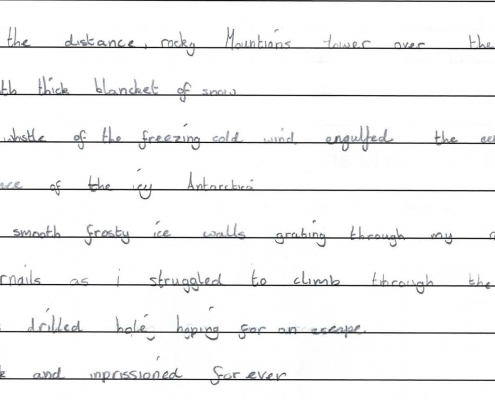 the distance, rocky Mountians tower over the
th thick blancket of snow
whstle of the freezing cold wind engulfed the
nce of the icy Antarctica
smooth frosty ice walls grating through my
rnails as i struggled to climb through the
drilled hole, hoping for an escape.
and inprissioned for ever